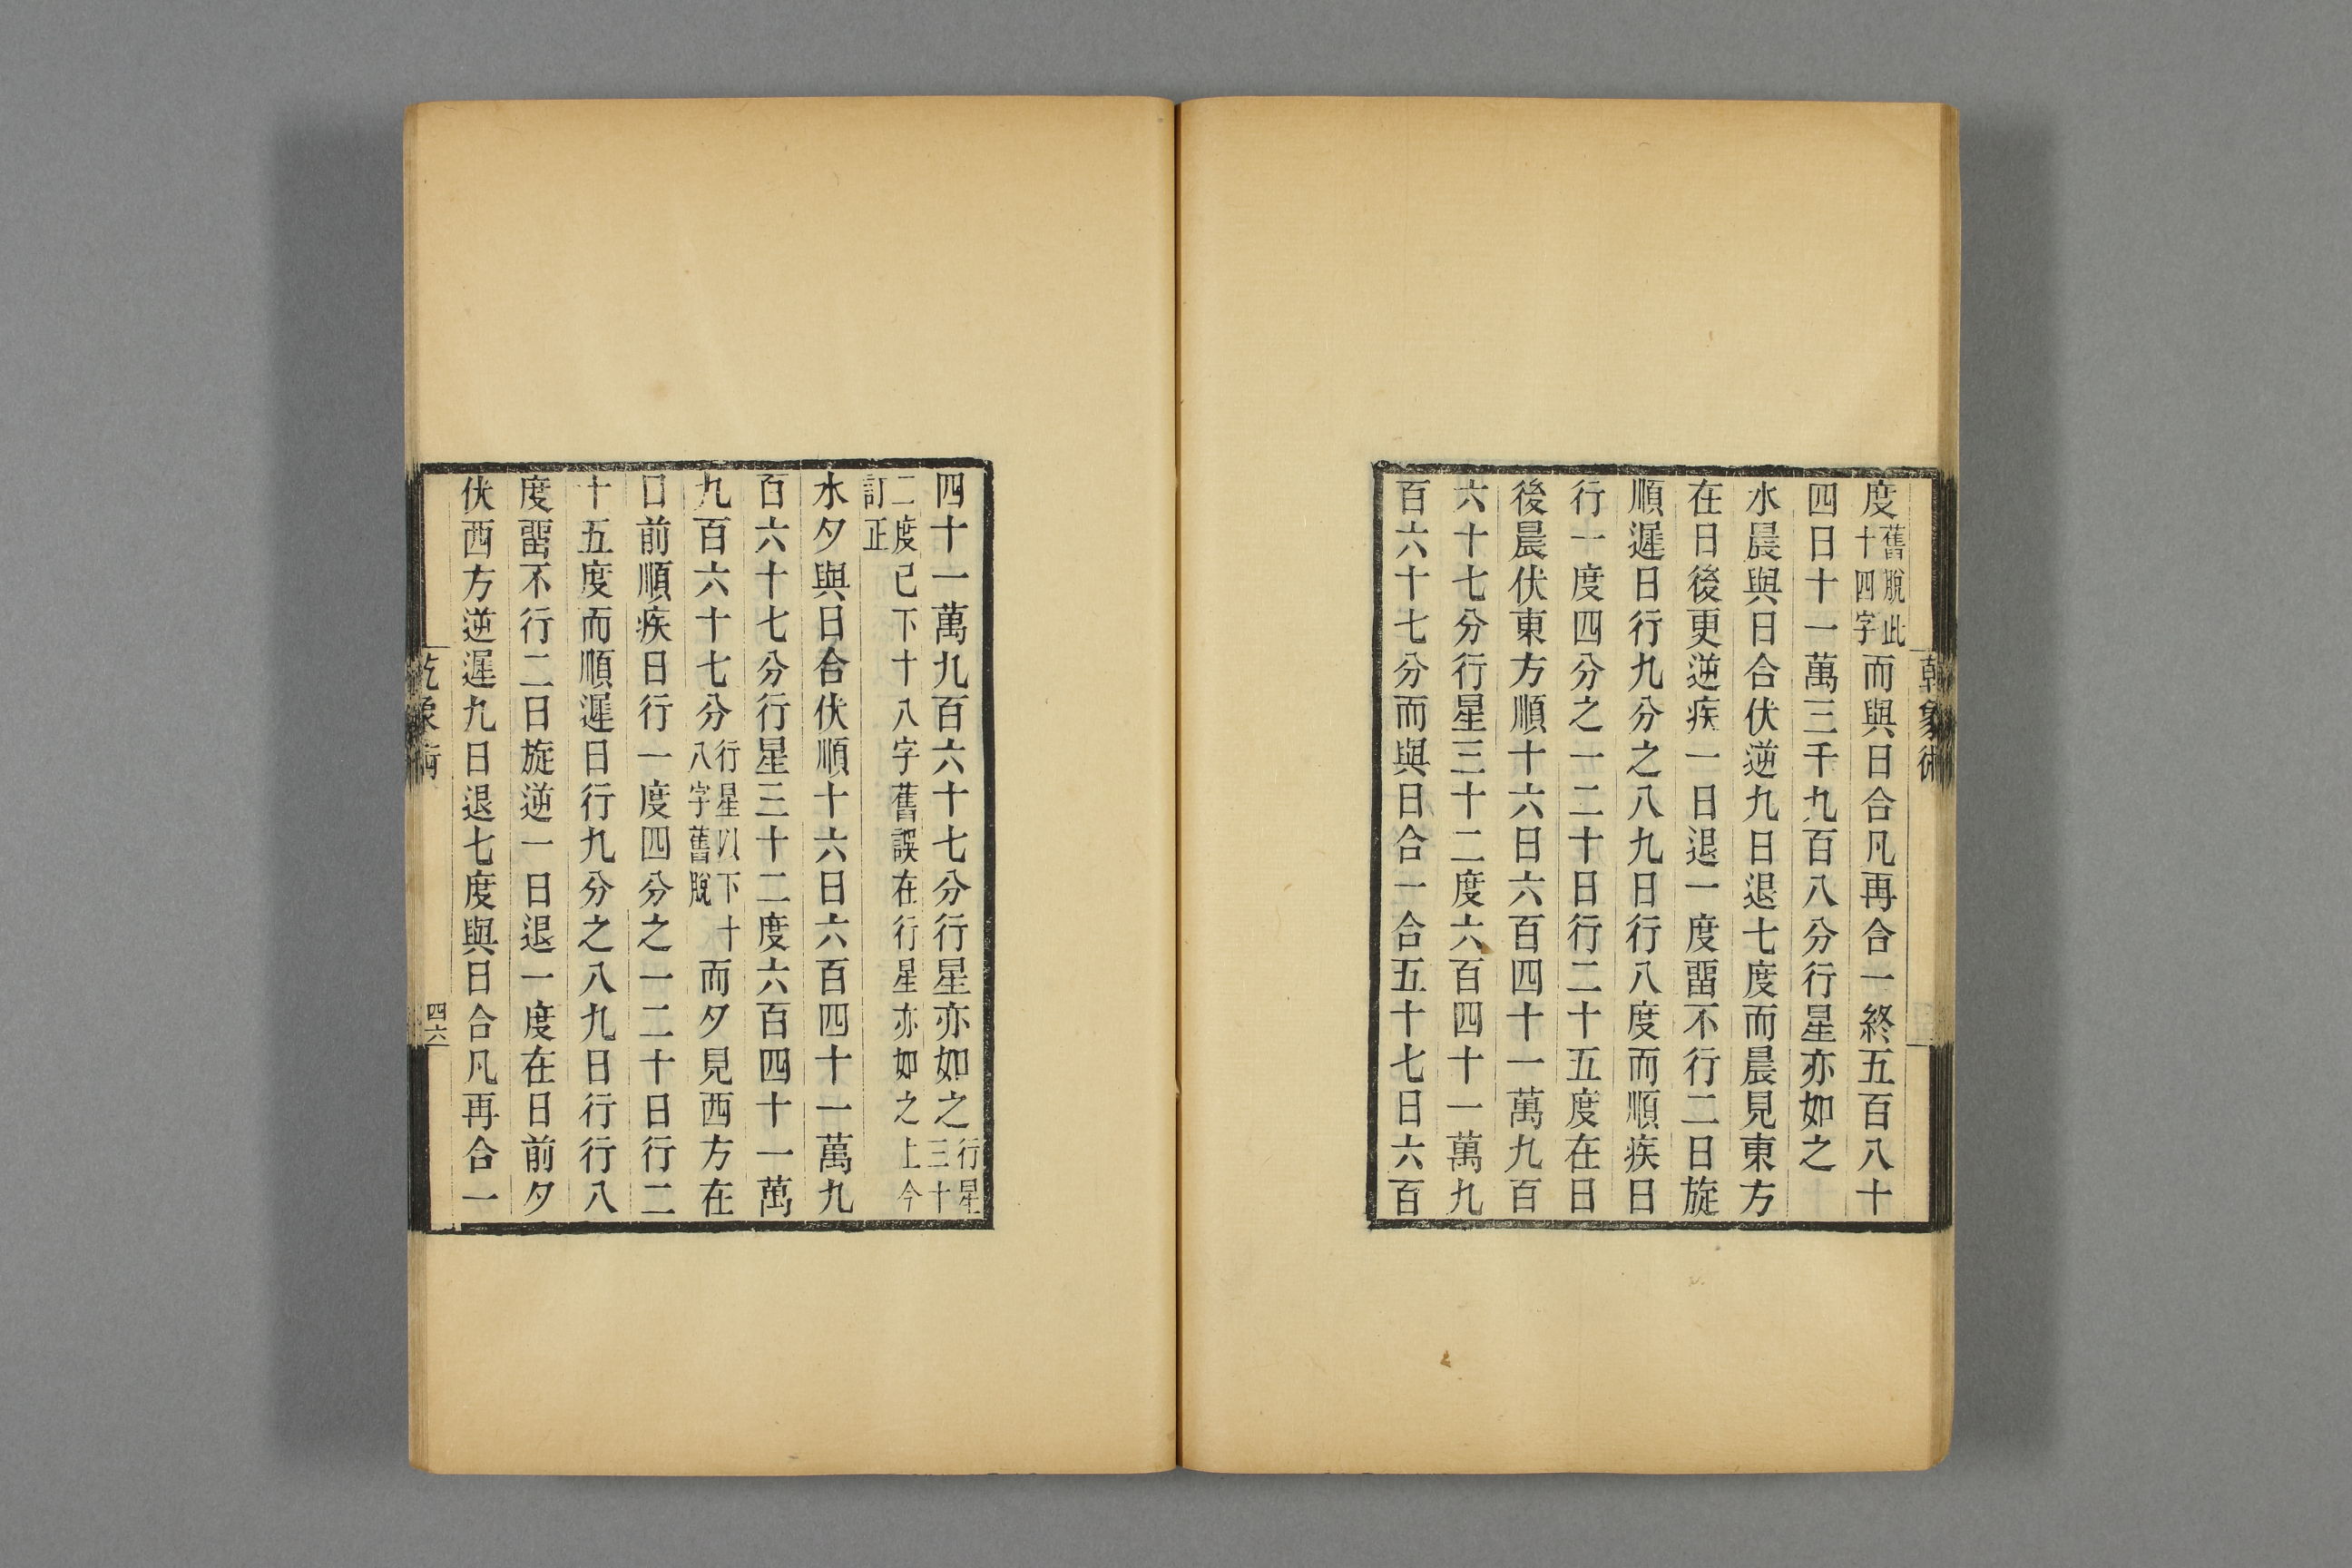 乾象術
度舊脫此十四字而與日合凡再合一終五百八十
四日十一萬三千九百八分行星亦如之
水晨與日合伏逆九日退七度而晨見東方
在日後更逆疾一日退一度畱不行二日旋
順遲日行九分之八九日行八度而順疾日
行一度四分之一二十日行二十五度在日
後晨伏東方順十六日六百四十一萬九百
六十七分行星三十二度六百四十一萬九
百六十七分而與日合一合五十七日六百
四十一萬九百六十七分行星亦如之行星三十
二度已下十八字舊誤在行星亦如之上今
訂正
水夕與日合伏順十六日六百四十一萬九
百六十七分行星三十二度六百四十一萬
九百六十七分行星以下十八字舊脫而夕見西方在
日前順疾日行一度四分之一二十日行二
十五度而順遲日行九分之八九日行行八
度畱不行二日旋逆一日退一度在日前夕
伏西方逆遲九日退七度與日合凡再合一
乾象術
四六